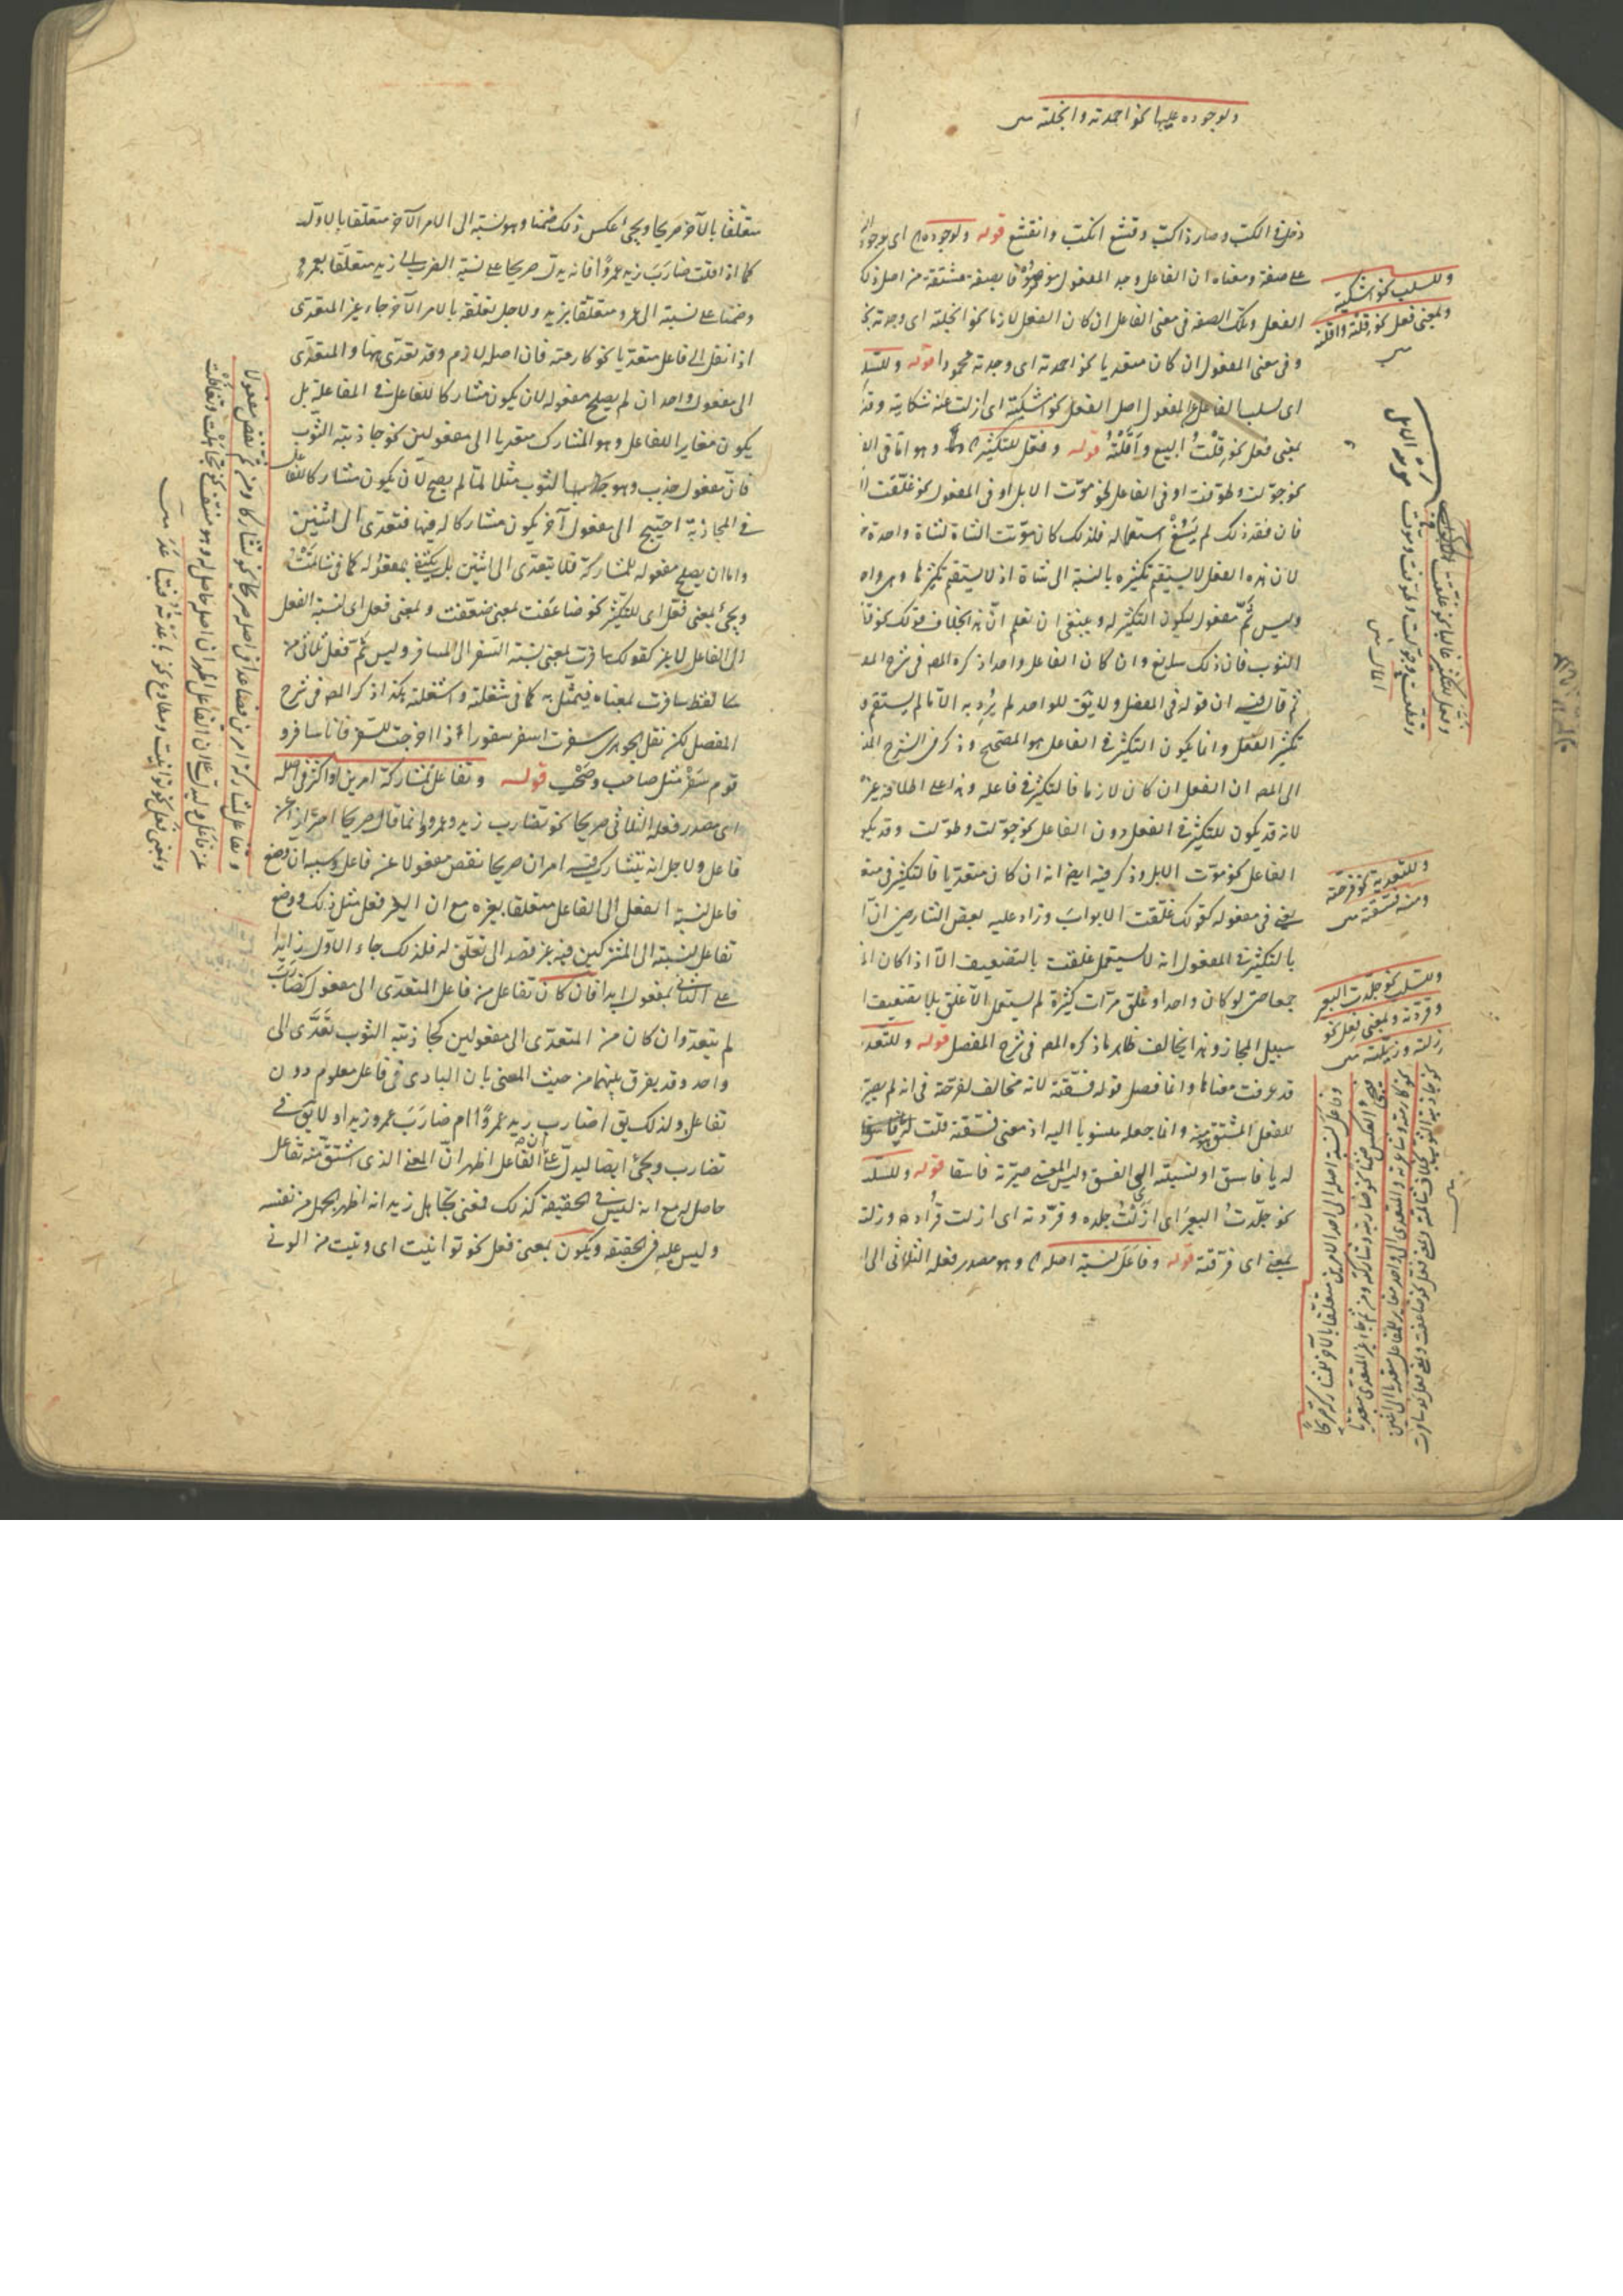 ولوجوده عليها نحو احمدته وانجلته
دخل في الكب وصار ذا كب وقشع انكب وانقشع قوله ولوجوده اى لوجود
على صفة ومعناه ان الفاعل وجد المفعول موصوفا بصفة مشتقة من اصل ذلك
الفعل وتلك الصفة في معنى الفاعل ان كان الفعل لازما نحو انجلته اى وجدته
وفي معنى المفعول ان كان متعديا نحو احمدته اى وجدته محمودا قوله وللسلب
اى لسلب الفاعل عن المفعول اصل الفعل نحو اشكيته اى ازلت عنه شكايته
بمعنى فعل نحو قِلْتُ البيع وأقلته قوله وفعّل للتكثير وهو اما في
نحو جوّلت وطوّفت او في الفاعل نحو موّتت الابل او في المفعول نحو غلّقت
فان فقد ذلك لم يسغ استعماله فلذلك كان موّتت الشاة لشاة واحدة
لان هذا الفعل لا يستقيم تكثيره بالنسبة الى شاة اذ لا يستقيم تكثيرها وهى واحد
وليس ثَمّ مفعول ليكون التكثير له وينبغى ان تعلم ان هذا بخلاف قولك
الثوب فان ذلك سايغ وان كان الفاعل واحدا ذكره المص في شرح
ثم قال فيه ان قوله في المفصل ولا يق للواحد لم يُرد به الا ما لم يستقم
تكثير الفعل وانما يكون التكثير في الفاعل هو المصحح وذكر في الشرح
الى المص ان الفعل ان كان لازما فالتكثير في فاعله وهذا على اطلاقه غير
لانه قد يكون للتكثير في الفعل دون الفاعل نحو جوّلت وطوّلت وقد يكون
الفاعل نحو موّتت الابل وذكر فيه ايضا انه ان كان متعديا فالتكثير في
يعنى في مفعوله كقولك غلّقت الابواب وزاد عليه بعض الشارحين ان
بالتكثير في المفعول انه لا يستعمل غلقت بالتضعيف الا اذا كان
جمعا حتى لو كان واحدا وغلق مرّات كثيرة لم يستعمل الا غلق بلا تضعيف
سبيل المجاز وهذا يخالف ظاهر ما ذكره المص في شرح المفصل قوله وللتعدية
قد عرفت معناها وانما فصل قوله فسّقته لانه مخالف لفرّحته في انه لم يصير
للفعل المشتق منه وانما جعله منسوبا اليه اذ معنى فسّقته قلت
له يا فاسق او نسبته الى الفسق وليس المعنى صيرته فاسقا قوله وللسلب
نحو جلّدتُ البعيرَ اى ازلتُ جلده وقرّدته اى ازلت قراده وزلته
بمعنى اى فرّقته قوله وفاعَلَ لنسبة اصله وهو مصدر فعله الثلاثى الى
وللسلب نحو اشكيته
وبمعنى فعل نحو قلته واقلته
وفعّل للتكثير غالبا نحو غلّقت
وقطّعت وجوّلت وطوّفت وموّت
المال
وللتعدية نحو فرّحته
ومنه فسّقته
وللسلب نحو جلّدت البعير
وقرّدته وبمعنى فعل نحو
زلته وزيّلته
وفاعل لنسبة اصله الى احد الامرين متعلقا بالآخر للمشاركة صريحا
فيجئ العكس ضمنا نحو ضاربته وشاركته ومن ثم جاء غير المتعدى متعديا
نحو كارمته وشاعرته والمتعدى الى واحد مغاير للمفاعل متعديا الى اثنين
نحو جاذبته الثوب بخلاف شاتمته وبمعنى فعّل نحو ضاعفت وبمعنى فعل نحو سافرت
متعلقا بالآخر صريحا ويجئ عكس ذلك ضمنا وهو نسبته الى الامر الآخر متعلقا بالاول
كما اذا قلت ضارَبَ زيد عمرًا فانه يدل صريحا على نسبة الضرب الى زيد متعلقا بعمرو
وضمنا على نسبته الى عمرو متعلقا بزيد ولاجل تعلقه بالامر الآخر جاء غير المتعدى
اذا نقل الى فاعل متعديا نحو كارمته فان اصله لازم وقد تعدى ههنا والمتعدى
الى مفعول واحد ان لم يصلح مفعوله لان يكون مشاركا للفاعل في المفاعلة بل
يكون مغايرا للفاعل وهو المشارك متعديا الى مفعولين نحو جاذبته الثوب
فان مفعول جذب وهو الثوب مثلا لما لم يصح لان يكون مشاركا للفاعل
في المجاذبة احتيج الى مفعول آخر يكون مشاركا له فيها فتعدى الى اثنين
واما ان يصلح مفعوله للمشاركة فلا يتعدى الى اثنين بل يكتفى بمفعوله كما في شاتمتُ
ويجئ بمعنى فعّل اى للتكثير نحو ضاعفت بمعنى ضعّفت وبمعنى فعل اى لنسبة الفعل
الى الفاعل لا غير كقولك سافرت بمعنى نسبة السفر الى المسافر وليس ثَمّ فعل ثلاثى من
لفظ سافرت بمعناه فيمثّل به كما في شغلته واشغلته هكذا ذكر المص في شرح
المفصل لكن نقل الجوهرى سفرت اسفر سفورا اذا خرجت للسفر فانا سافر و
قوم سَفْر مثل صاحب وصحب قوله وتفاعل لمشاركة امرين او اكثر في اصله
اى مصدر فعله الثلاثى صريحا نحو تضارب زيد وعمرو وانما قال صريحا احترازا عن
فاعل ولاجل انه يتشارك فيه امران صريحا نقص مفعولا عن فاعل وسببه ان وضع
فاعل لنسبة الفعل الى الفاعل متعلقا بغيره مع ان الغير فعل مثل ذلك ووضع
تفاعل لنسبته الى المشتركين فيه من غير قصد الى تعلق له فلذلك جاء الاول زايدا
على الثانى بمفعول ابدا فان كان تفاعل من فاعل المتعدى الى مفعول كضارب
لم يتعد وان كان من المتعدى الى مفعولين كجاذبته الثوب تعدّى الى
واحد وقد يفرق بينهما من حيث المعنى بان البادى في فاعل معلوم دون
تفاعل ولذلك يق اضارب زيد عمرًا ام ضارَبَ عمرو زيدا ولا يق في
تضارب ويجئ ايضا ليدل على ان الفاعل اظهر ان المعنى الذى اشتق منه تفاعل
حاصل له مع انه ليس في الحقيقة كذلك فمعنى تجاهل زيد انه اظهر الجهل من نفسه
وليس عليه في الحقيقة ويكون بمعنى فعل نحو توانيت اى ونيت من الونى
وتفاعل لمشاركة امرين فصاعدا في اصله صريحا نحو تشاركا ومن ثم نقص مفعولا
عن فاعل وليدل على ان الفاعل اظهر ان اصله حاصل له وهو منتف نحو تجاهلت وتغافلت
وبمعنى فعل نحو توانيت ومطاوع نحو باعدته فتباعد